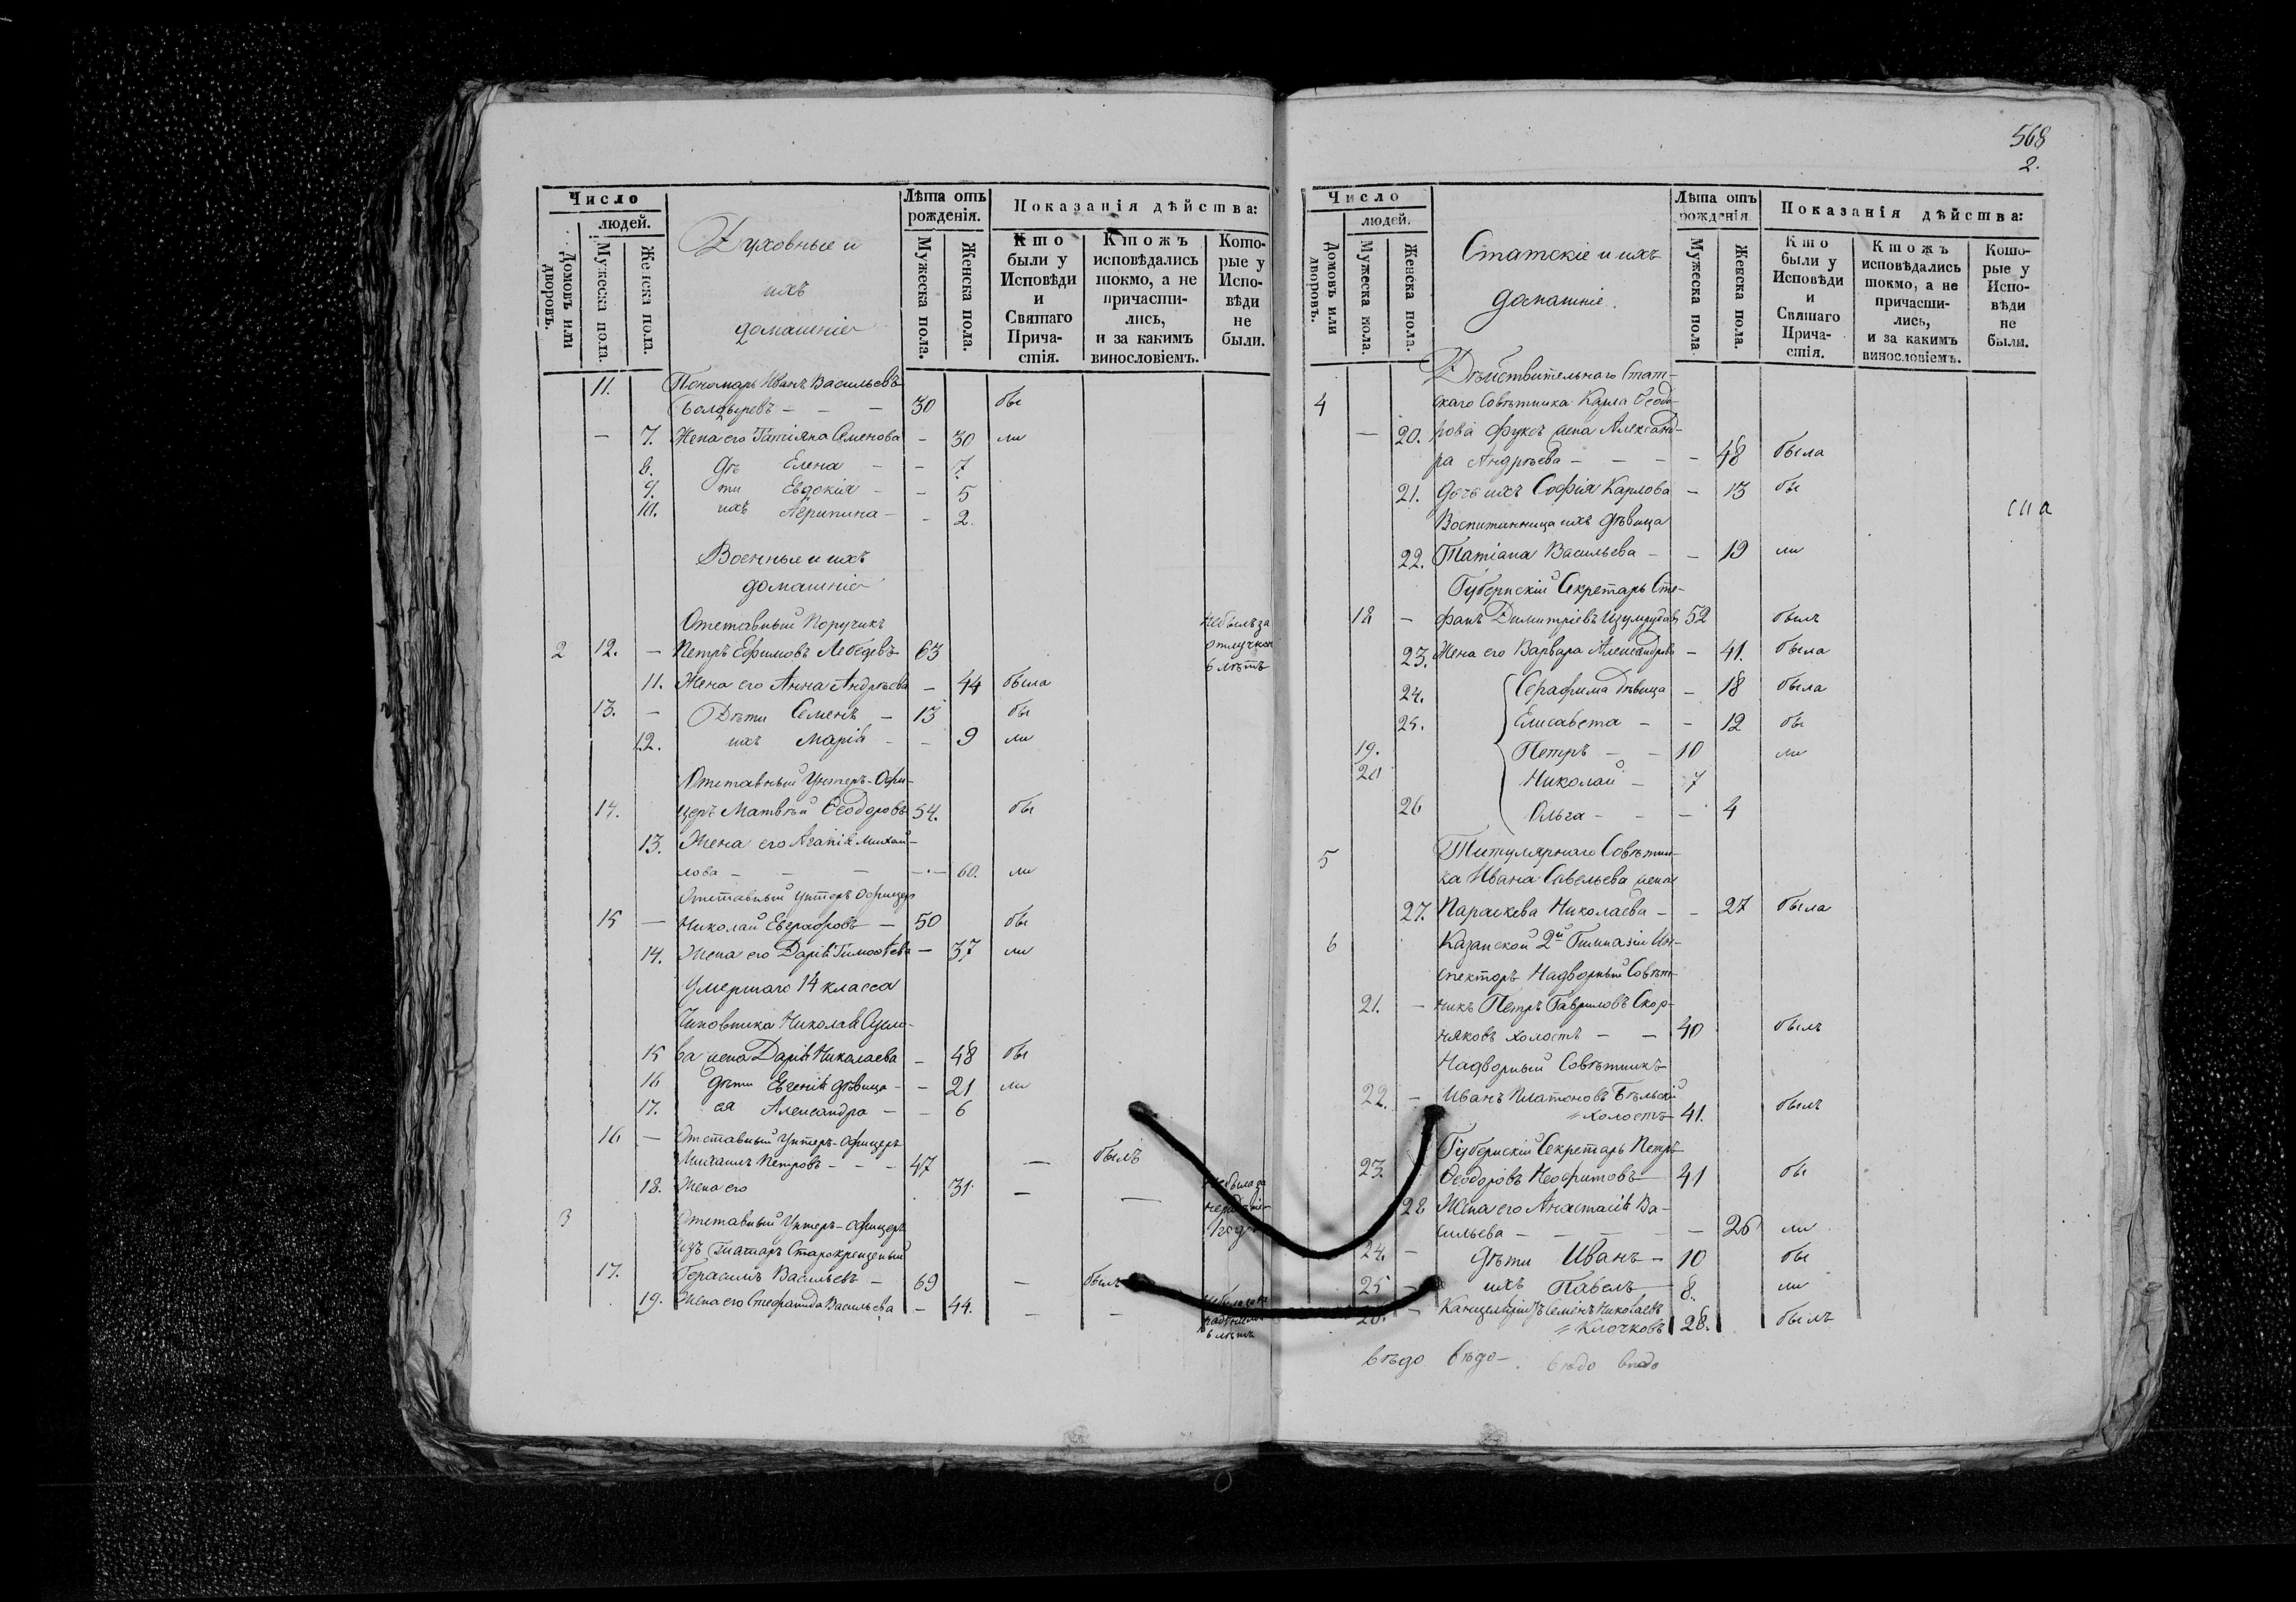 568
2.
Число
людей.
Домовъ или дворовъ.
Мужеска пола.
Женска пола.
Духовные и
ихъ
домашніе
Лѣта отъ рожденія.
Мужеска пола.
Женска пола.
Показанія дѣйства:
Кто были у Исповѣди и Святаго Прича-стія.
Ктожъ исповѣдались токмо, а не причасти-лись, и за какимъ винословіемъ.
Кото-рые у Испо-вѣди не были.
11. Пономарь Иванъ Васильевъ
Болдыревъ - - - 30 бы
- 7. Жена его Татіяна Семенова - 30 ли
8. дѣ Елена - - 7.
9. ти Евдокія - - 5
10. ихъ Агрипина - - 2.
Военные и ихъ
домашніе
Отставный Поручикъ
2 12. - Петръ Ефимовъ Лебедевъ 63 не былъ за отлучкою 6 лѣтъ
11. Жена его Анна Андреева - 44 была
13. - Дѣти Семенъ - 13 бы
12. ихъ Марія - - 9 ли
Отставный Унтеръ-Офи-
14. церъ Матвѣй Ѳеодоровъ 54. бы
13. Жена его Агапія Михай-
лова - - - - 60. ли
Отставный Унтеръ Офицеръ
15 - Николай Евграфовъ - 50 бы
14. Жена его Дарія Тимоѳѣева - 37 ли
Умершаго 14 класса
Чиновника Николая
15 ва жена Дарія Николаева - 48 бы
16 дѣти Евгенія дѣвица - - 21 ли
17. ея Александра - - 6
16 - Отставный Унтеръ-Офицеръ
Михаилъ Петровъ - - - 47 - былъ
18. Жена его 31. - - не была за
3 Отставный Унтеръ-Офицеръ
изъ татаръ Старокрещеный
17. Герасимъ Васильевъ - 69 - былъ
19. Жена его Стефанида Васильева - 44. - - 6 лѣтъ
Число
людей.
Домовъ или дворовъ.
Мужеска пола.
Женска пола.
Статскіе и ихъ
домашніе.
Лѣта отъ рожденія
Мужеска пола
Женска пола.
Показанія дѣйства:
Кто были у Исповѣди и Святаго Прича-стія.
Ктожъ исповѣдались токмо, а не причасти-лись, и за какимъ винословіемъ.
Кото-рые у Испо-вѣди не были.
Дѣйствительнаго Стат-
4 скаго Совѣтника Карла Ѳеодо-
- 20. рова Фуксъ жена Александ-
ра Андреева - - - - 48 была
21. Дочь ихъ Софія Карлова - 13 бы
Воспитанница ихъ дѣвица
22. Татіана Васильева - - 19 ли
Губернскій Секретарь Сте-
18 - фанъ Димитріевъ Изумрудовъ 52 былъ
23. Жена его Варвара Александрова - 41. была
24. Серафима Дѣвица - 18 была
25. Елисавета - - 12 бы
19. Петръ - - 10 ли
20 Николай - 7
26 Ольга - - - 4
5 Титулярнаго Совѣтни-
ка Ивана Савельева жена
27. Параскева Николаева - - 27 была
6 Казанской 2й Гимназіи Ин-
спекторъ Надворный Совѣт-
21. - никъ Петръ Гавриловъ Скор-
няковъ холостъ - - 40 былъ
Надворный Совѣтникъ
22. - Иванъ Платоновъ Бѣльскій
холостъ 41. былъ
Губернскій Секретарь Петръ
23. Ѳеодоровъ Неофитовъ 41 бы
28 Жена его Анастасія Ва-
сильева - - - - - 26 ли
24. - дѣти Иванъ - 10 бы
25 - ихъ Павелъ - 8. ли
26. - Семенъ Николаевъ
Клочковъ 28. былъ
вѣдо вѣдо - вѣдо вѣдо